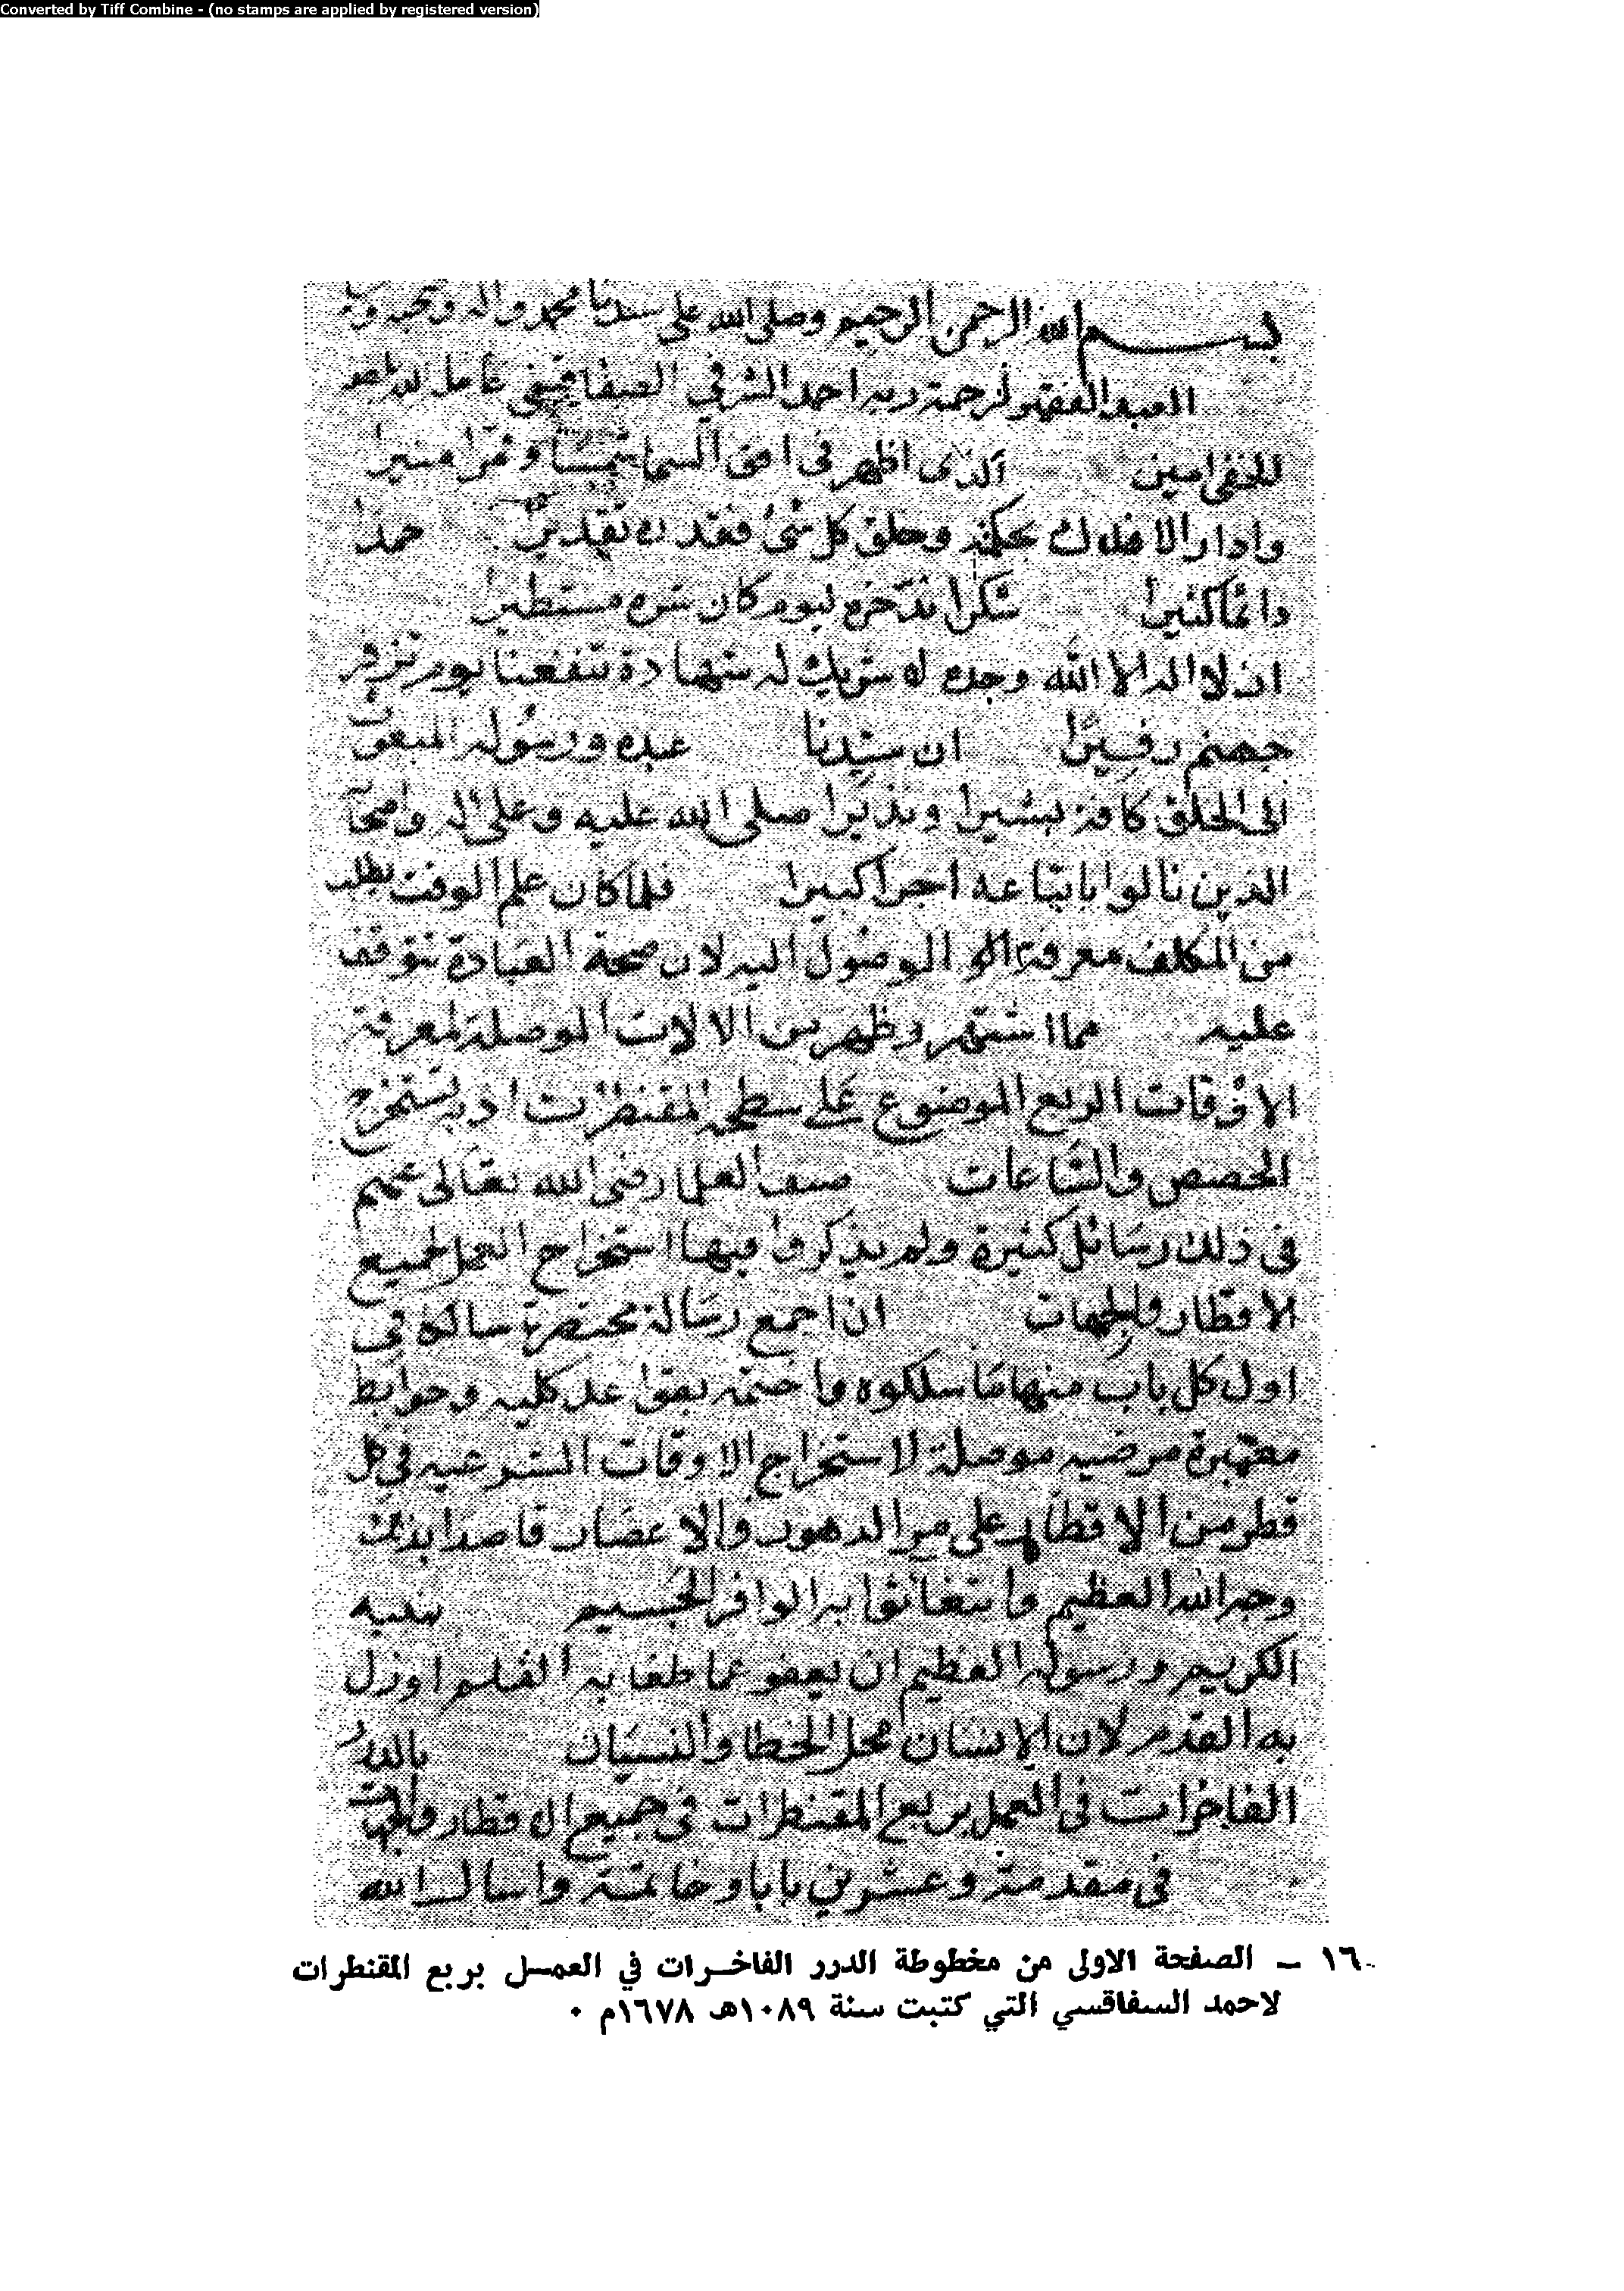 Converted by Tiff Combine - (no stamps are applied by registered version)
بسم الله الرحمن الرحيم وصلى الله على سيدنا محمد واله وصحبه
العبد الفقير لرحمة ربه احمد الشرفي الصفاقسي عامله الله
الخفي امين الذى اظهر فى افق السما شمسا وقمرا منيرا
وادار الافلاك بحكمته وخلق كل شئ فقدره تقديرا حمدا
دائما كثيرا شكرا ندخره ليوم كان شره مستطيرا
ان لا اله الا الله وحده لا شريك له شهادة تنفعنا يوم
جهنم زفيرا ان سيدنا عبده ورسوله المبعوث
الى الخلق كافة بشيرا ونذيرا صلى الله عليه وعلى اله واصحا
الذين نالوا باتباعه اجرا كبيرا فلما كان علم الوقت يطلب
من المكلف معرفته او الوصول اليه لان صحة العبادة تتوقف
عليه مما اشتهر وظهر من الالات الموصلة لمعرفة
الاوقات الربع الموضوع على سطحه المقنطرات اذ به يستخرج
الحصص والساعات صنف العلما رضى الله تعالى عنهم
فى ذلك رسائل كثيرة ولم يذكروا فيها استخراج العمل لجميع
الاقطار والجهات ان اجمع رسالة مختصرة سالكا فى
اول كل باب منها ما سلكوه واختمه بقواعد كليه وضوابط
معتبرة مرضيه موصلة لاستخراج الاوقات الشرعيه فى كل
قطر من الاقطار على مر الدهور والاعصار قاصدا بذلك
وجه الله العظيم وابتغا ثوابه الوافر الجسيم بنبيه
الكريم ورسوله العظيم ان يعفو عما طغا به القلم او زل
به القدم لان الانسان محل الخطا والنسيان بالدرر
الفاخرات فى العمل بربع المقنطرات فى جميع الاقطار والجهات
فى مقدمة وعشرين بابا وخاتمة واسال الله
١٦ - الصفحة الاولى من مخطوطة الدرر الفاخرات في العمل بربع المقنطرات
لاحمد السفاقسي التي كتبت سنة ١٠٨٩هـ ١٦٧٨م ٠